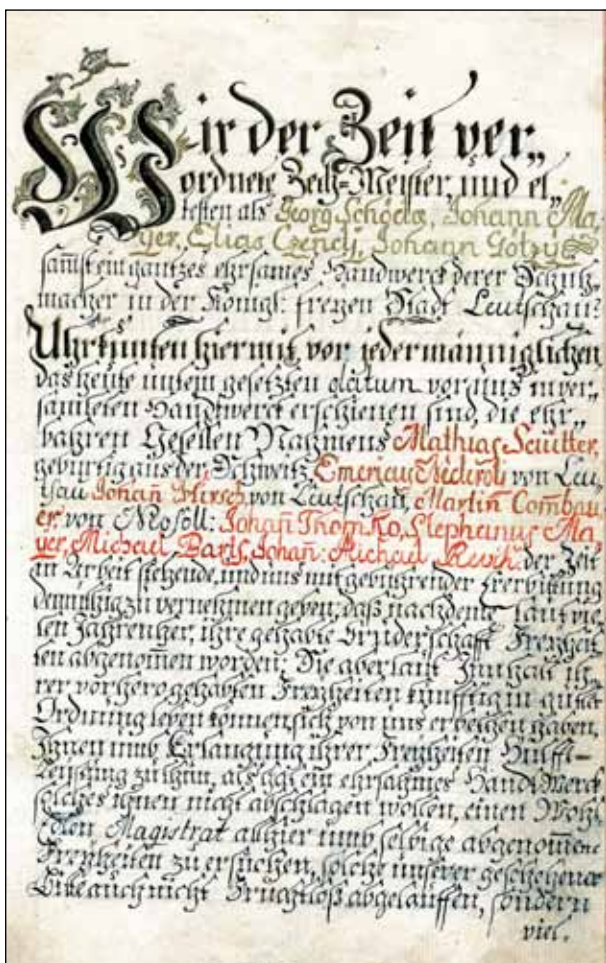 Wir der Zeit ver„
ordnete Zech=Meister, und el„
testen als Georg Schöcls, Johann Ma„
yer, Elias Czencz, Johann Götzy
sam̄t ein gantzes ehrsames Handwerck derer Schuh„
macher in der Königl: freyen Stadt Leutschau:
Uhrkunten hiermit, vor jedermänniglichen
das heute untem gesetzten datum vor uns in ver„
samleten Handtwerck erschienen sind, die ehr„
bahren Gesellen Nahmens Mathias Scuitter,
gebürtig aus der Schweitz, von Leu„
tsau Johan̄ Hirsch von Leutschau, Martin Com̄bau„
er, von Mosoll: Johan̄ Thomko, Stephanus Ma„
yer, Michael Barts, Johan̄: Michael der Zeit
in Arbeit stehende, und uns mit gebührender Ererbittung
demüthig zu vernehmen geben, daß nachdeme laut vie„
len Jahren her, ihre gehabte Brüderschafft Freyhei„
ten abgenom̄en worden: Sie aber laut Innhalt ih„
rer vorhero gehabten Freyheiten künfftig in guter
Ordnung leben können, sich von uns erbethen haben,
Ihnen umb Erlangung ihrer Freyheiten Hülff=
Leistung zu thun, als ein ehrsahmes Handt Werck
solches ihnen nicht abschlagen wollen, einen Wohl
Edlen Magistrat allhier umb selbige abgenom̄ene
Freyheiten zu ersuchen, solche unserer geschehener
Bitte auch nicht Fruchtloß abgelauffen, sondern
viel.